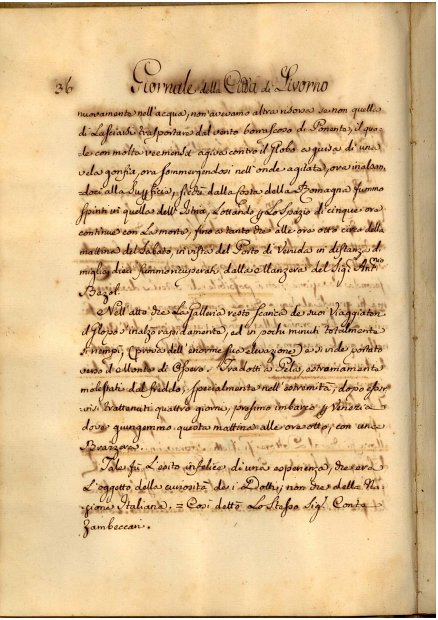 36 Giornale della Città di Livorno
nuovamente nell'acqua, non avevamo altra risorsa se non quella
di Lasciarsi trasportare dal vento borrascoso di Ponente, il qua-
le con molta veemenza agiva contro il Globo a guisa di una
vela gonfia, ora sommergendosi nell'onde agitate, ora inalzan-
doci alla Superficie, finchè dalla costa della Romagna fummo
spinti in quella dell'Istria, Lottando p lo spazio di cinque ore
continue con La morte, fino a tanto che alle ore otto circa della
mattina del Sabato, in vista del Porto di Veruda in distanza di
miglia dieci fummo ricuperati dalla Manzera del Sig. Ant.nio
Bazol.
Nell'atto che La Galleria restò scarica de' suoi Viaggiatori
il Globo s'inalzò rapidamente, ed in pochi minuti totalmente
si riempì, (prova dell'enorme sua elevazione) e si vide portato
verso il Monte di Osero. Tradotti a Pola, estremamente
molestati dal freddo, specialmente nell'estremità, dopo esser-
visi trattenuti quattro giorni, presimo imbarco p Venezia
dove giungemmo questa mattina alle ore otto, con una
Brazzera.
Tale fù L'esito infelice di una esperienza, che era
L'oggetto della curiosità de i Dotti, non che della Na-
zione Italiana. = Così dette Lo Stesso Sig. Conte
Zambeccari.